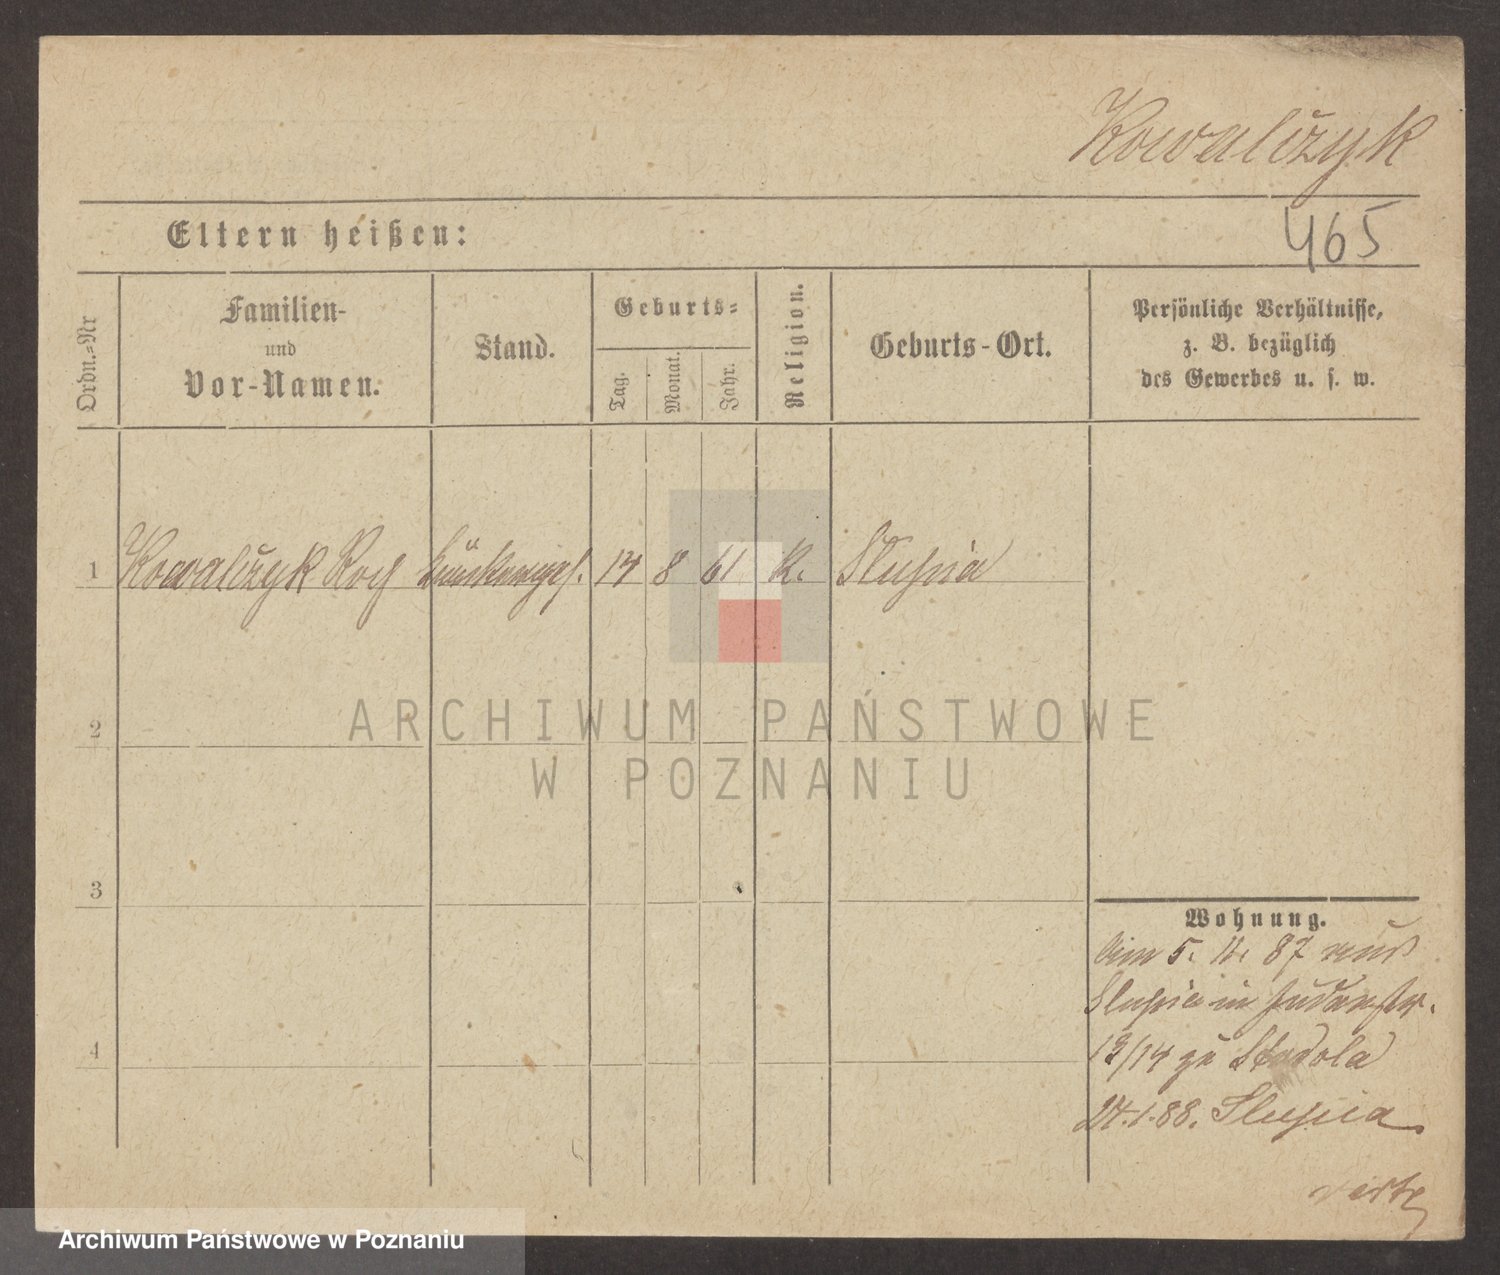 Kowalczyk
465
Eltern heißen:
Ordn.-Nr
Familien-
und
Vor-Namen.
Stand.
Geburts-
Tag.
Monat.
Jahr.
Religion.
Geburts-Ort.
Persönliche Verhältnisse,
z. B. bezüglich
des Gewerbes u. s. w.
1 Kowalczyk Roch 14 8 61 K. Slupia
2
3
4
Wohnung.
Am 5. 87 aus
Slupia in Judenstr.
13/14 zu Stodola
24.1.88. Slupia
ARCHIWUM PAŃSTWOWE
W POZNANIU
Archiwum Państwowe w Poznaniu